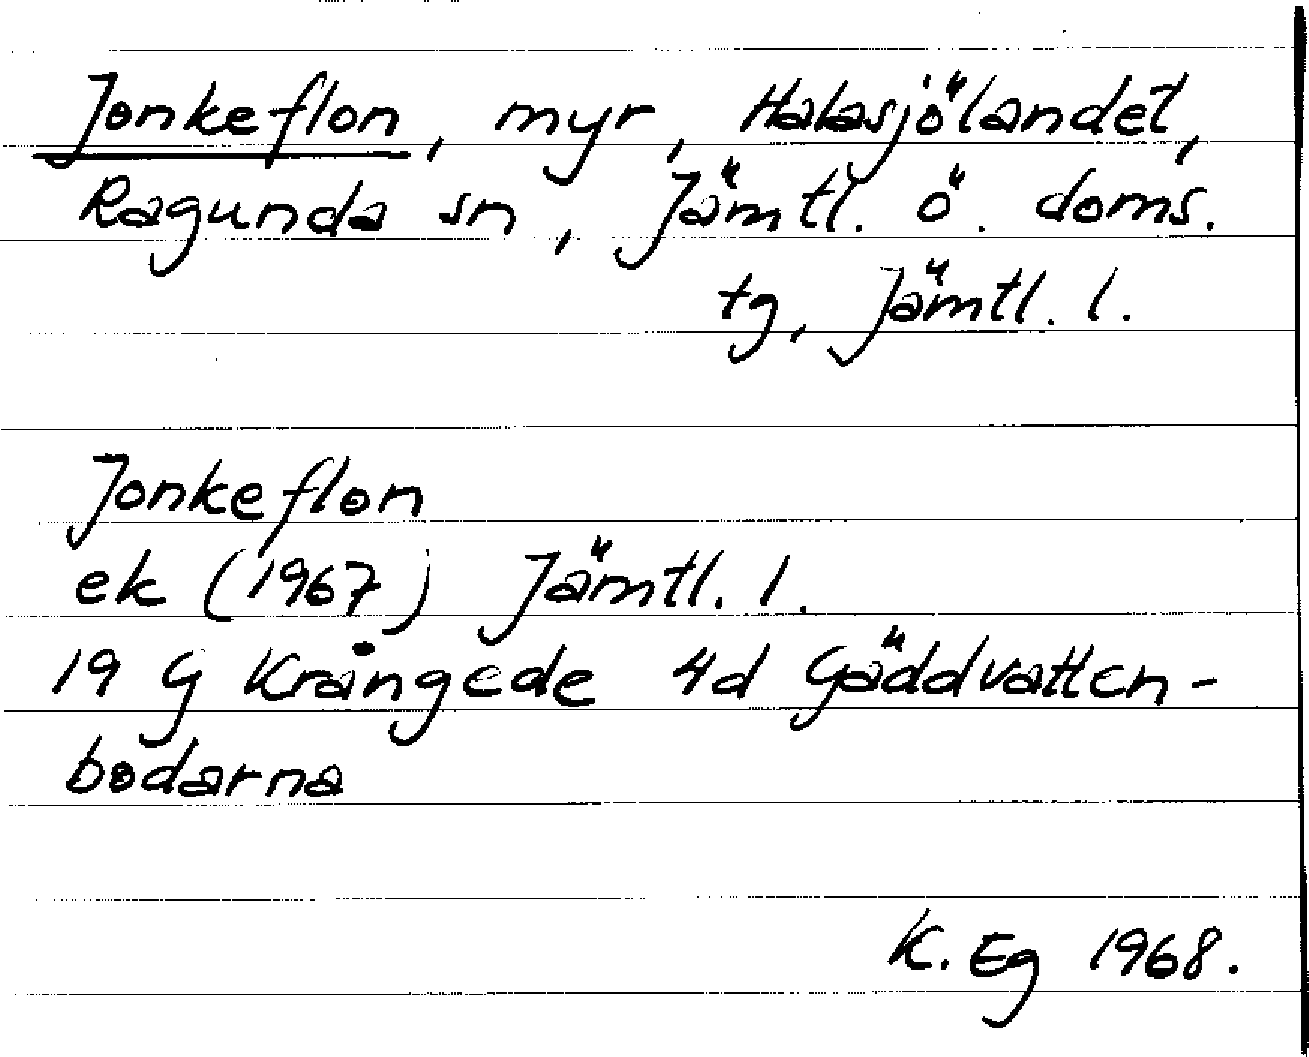 Jonkeflon, myr, Halasjölandet,
Ragunda sn, Jämtl. ö. doms.
tg, Jämtl. l.
Jonkeflon
ek (1967) Jämtl. l.
19 G Krångede 4d Gäddvatten-
bodarna
K. Eg 1968.